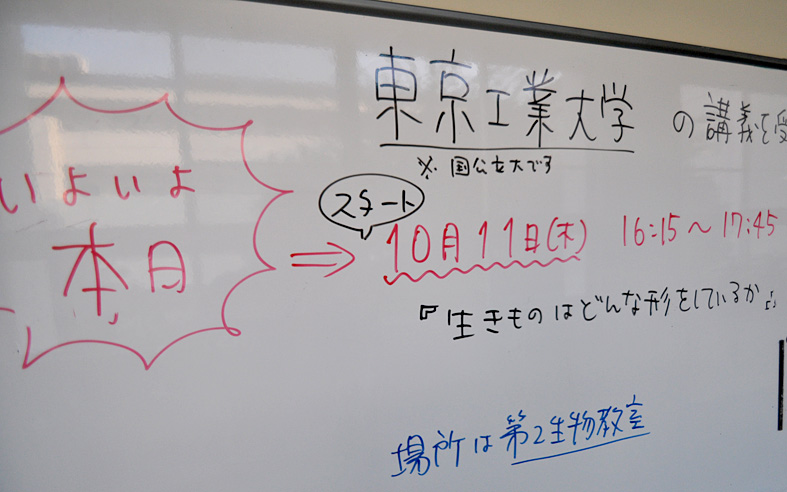 東京工業大学 の講義を受
※ 国公立大です
いよいよ
本日
⇒
スタート
10月11日(木) 16:15～17:45
『生きものはどんな形をしているか』
場所は第2生物教室